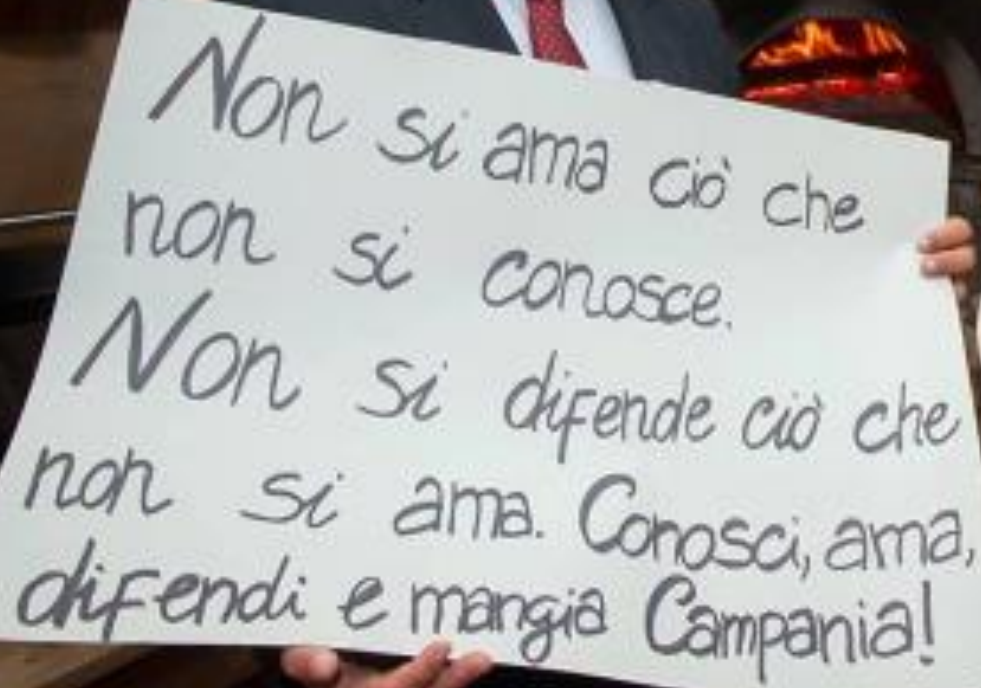 Non si ama ciò che
non si conosce.
Non si difende ciò che
non si ama. Conosci, ama,
difendi e mangia Campania!